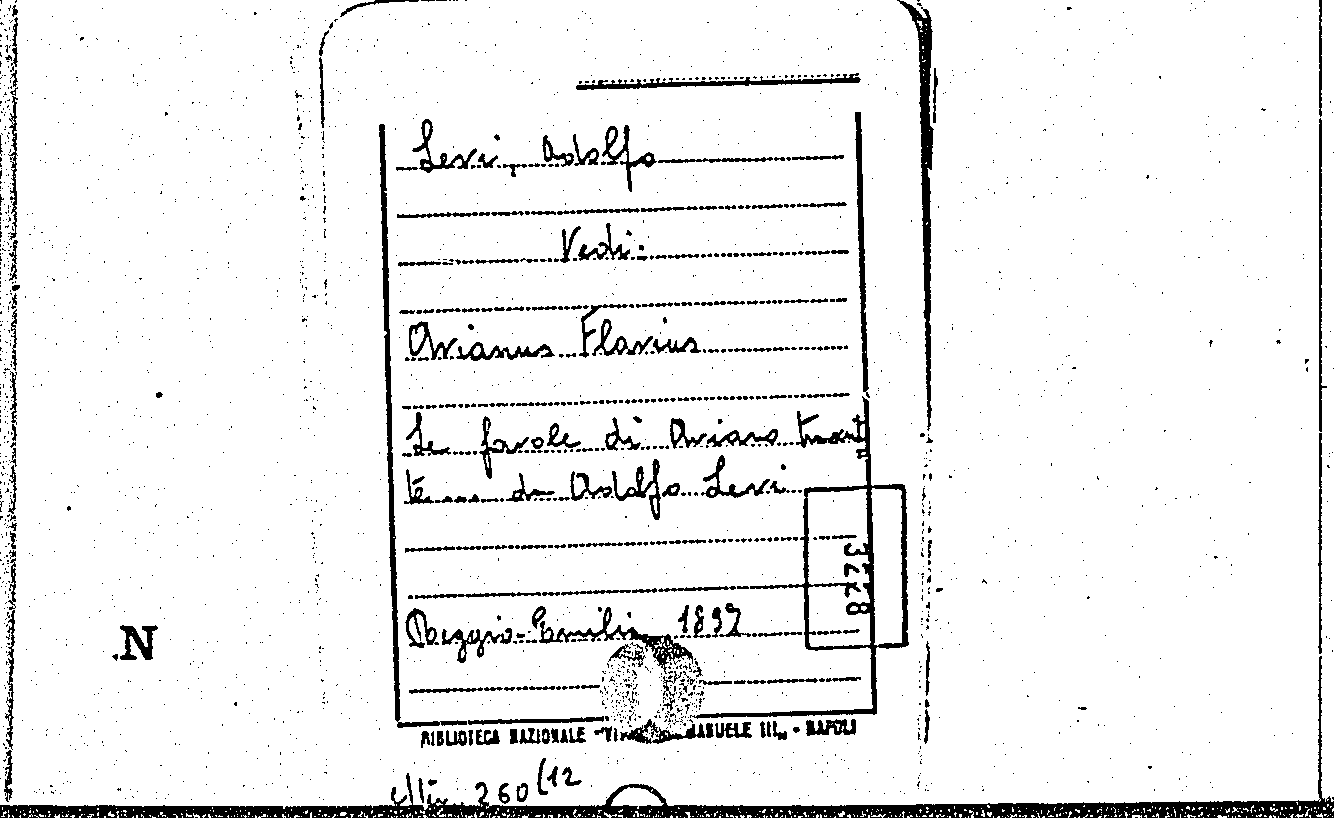 Levi, Adolfo
Vedi:
Avianus Flavius
Le favole di Aviano
te .... da Adolfo Levi
Reggio-Emilia 1897
3778
N
BIBLIOTECA NAZIONALE "VI MANUELE III„ - NAPOLI
260 (12